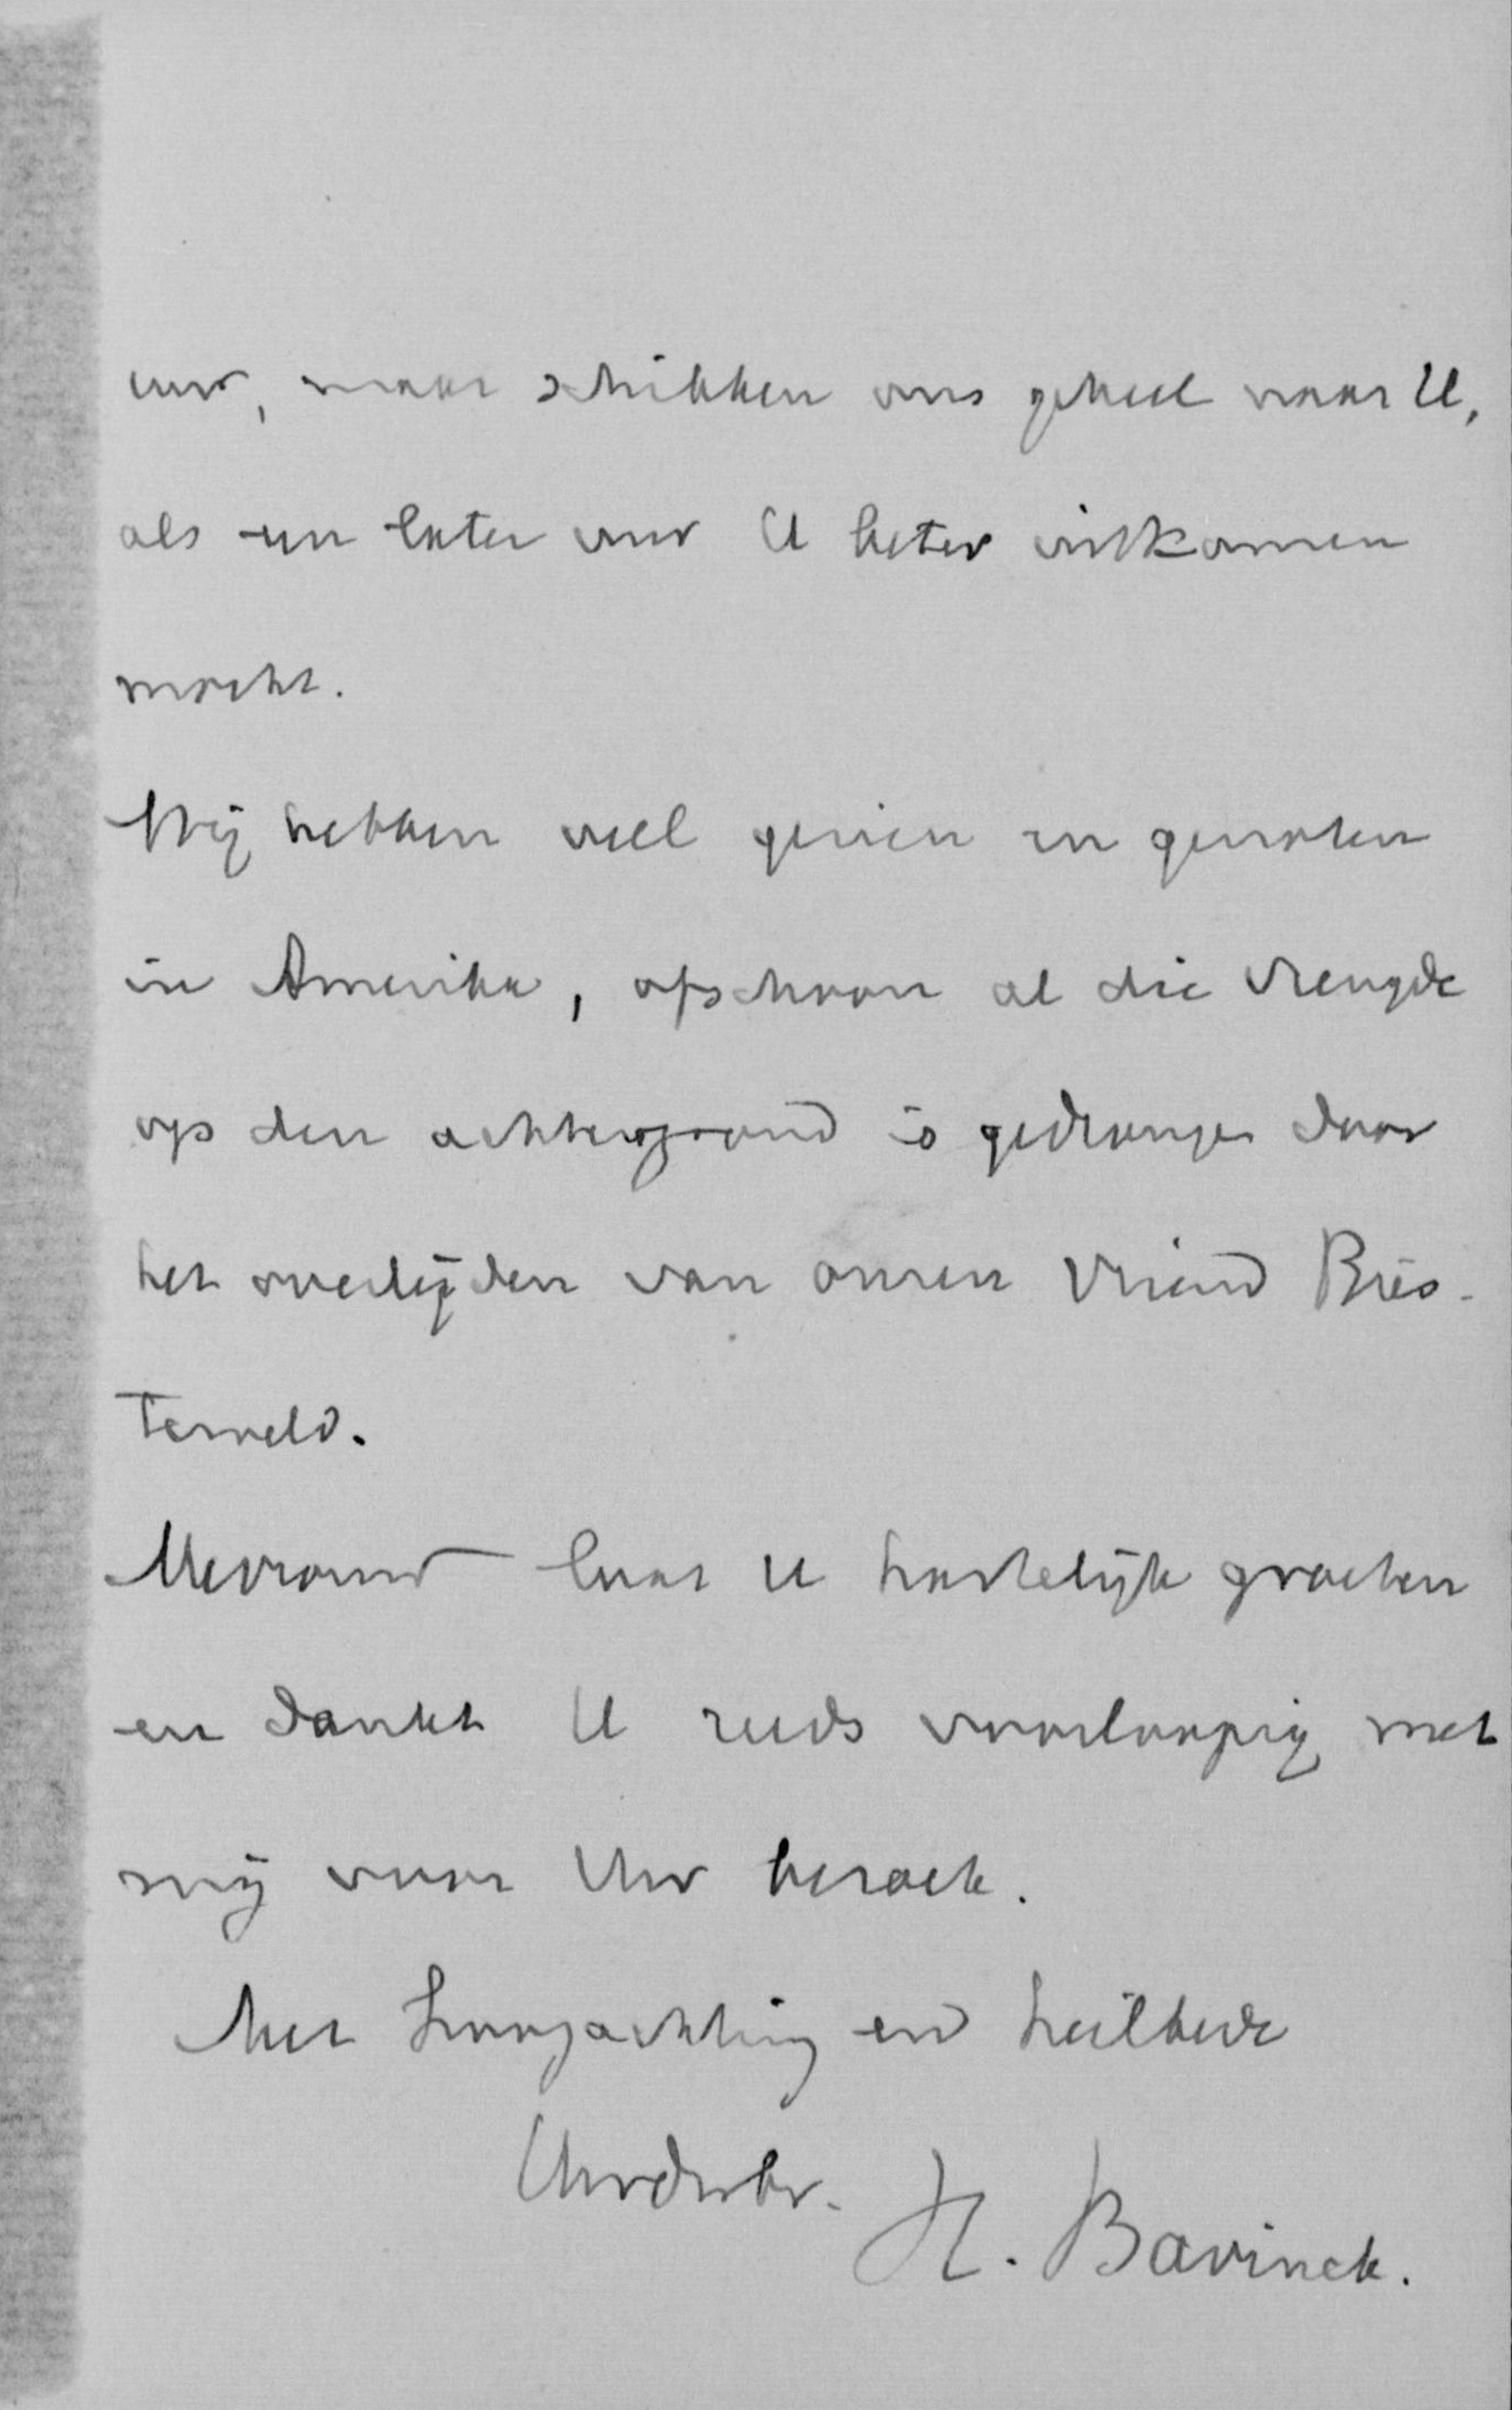 uur, maar schikken ons geheel naar U,
als een later uur U beter uitkomen
mocht.
Wij hebben veel gezien en genoten
in Amerika, ofschoon al die vreugde
op den achtergrond is gedrongen door
het overlijden van onzen vriend Bies-
terveld.
Mevrouw laat U hartelijk groeten
en dankt U reeds voorloopig met
mij voor Uw bezoek.
Met hoogachting en heilbede
Uwdwbr. H. Bavinck.